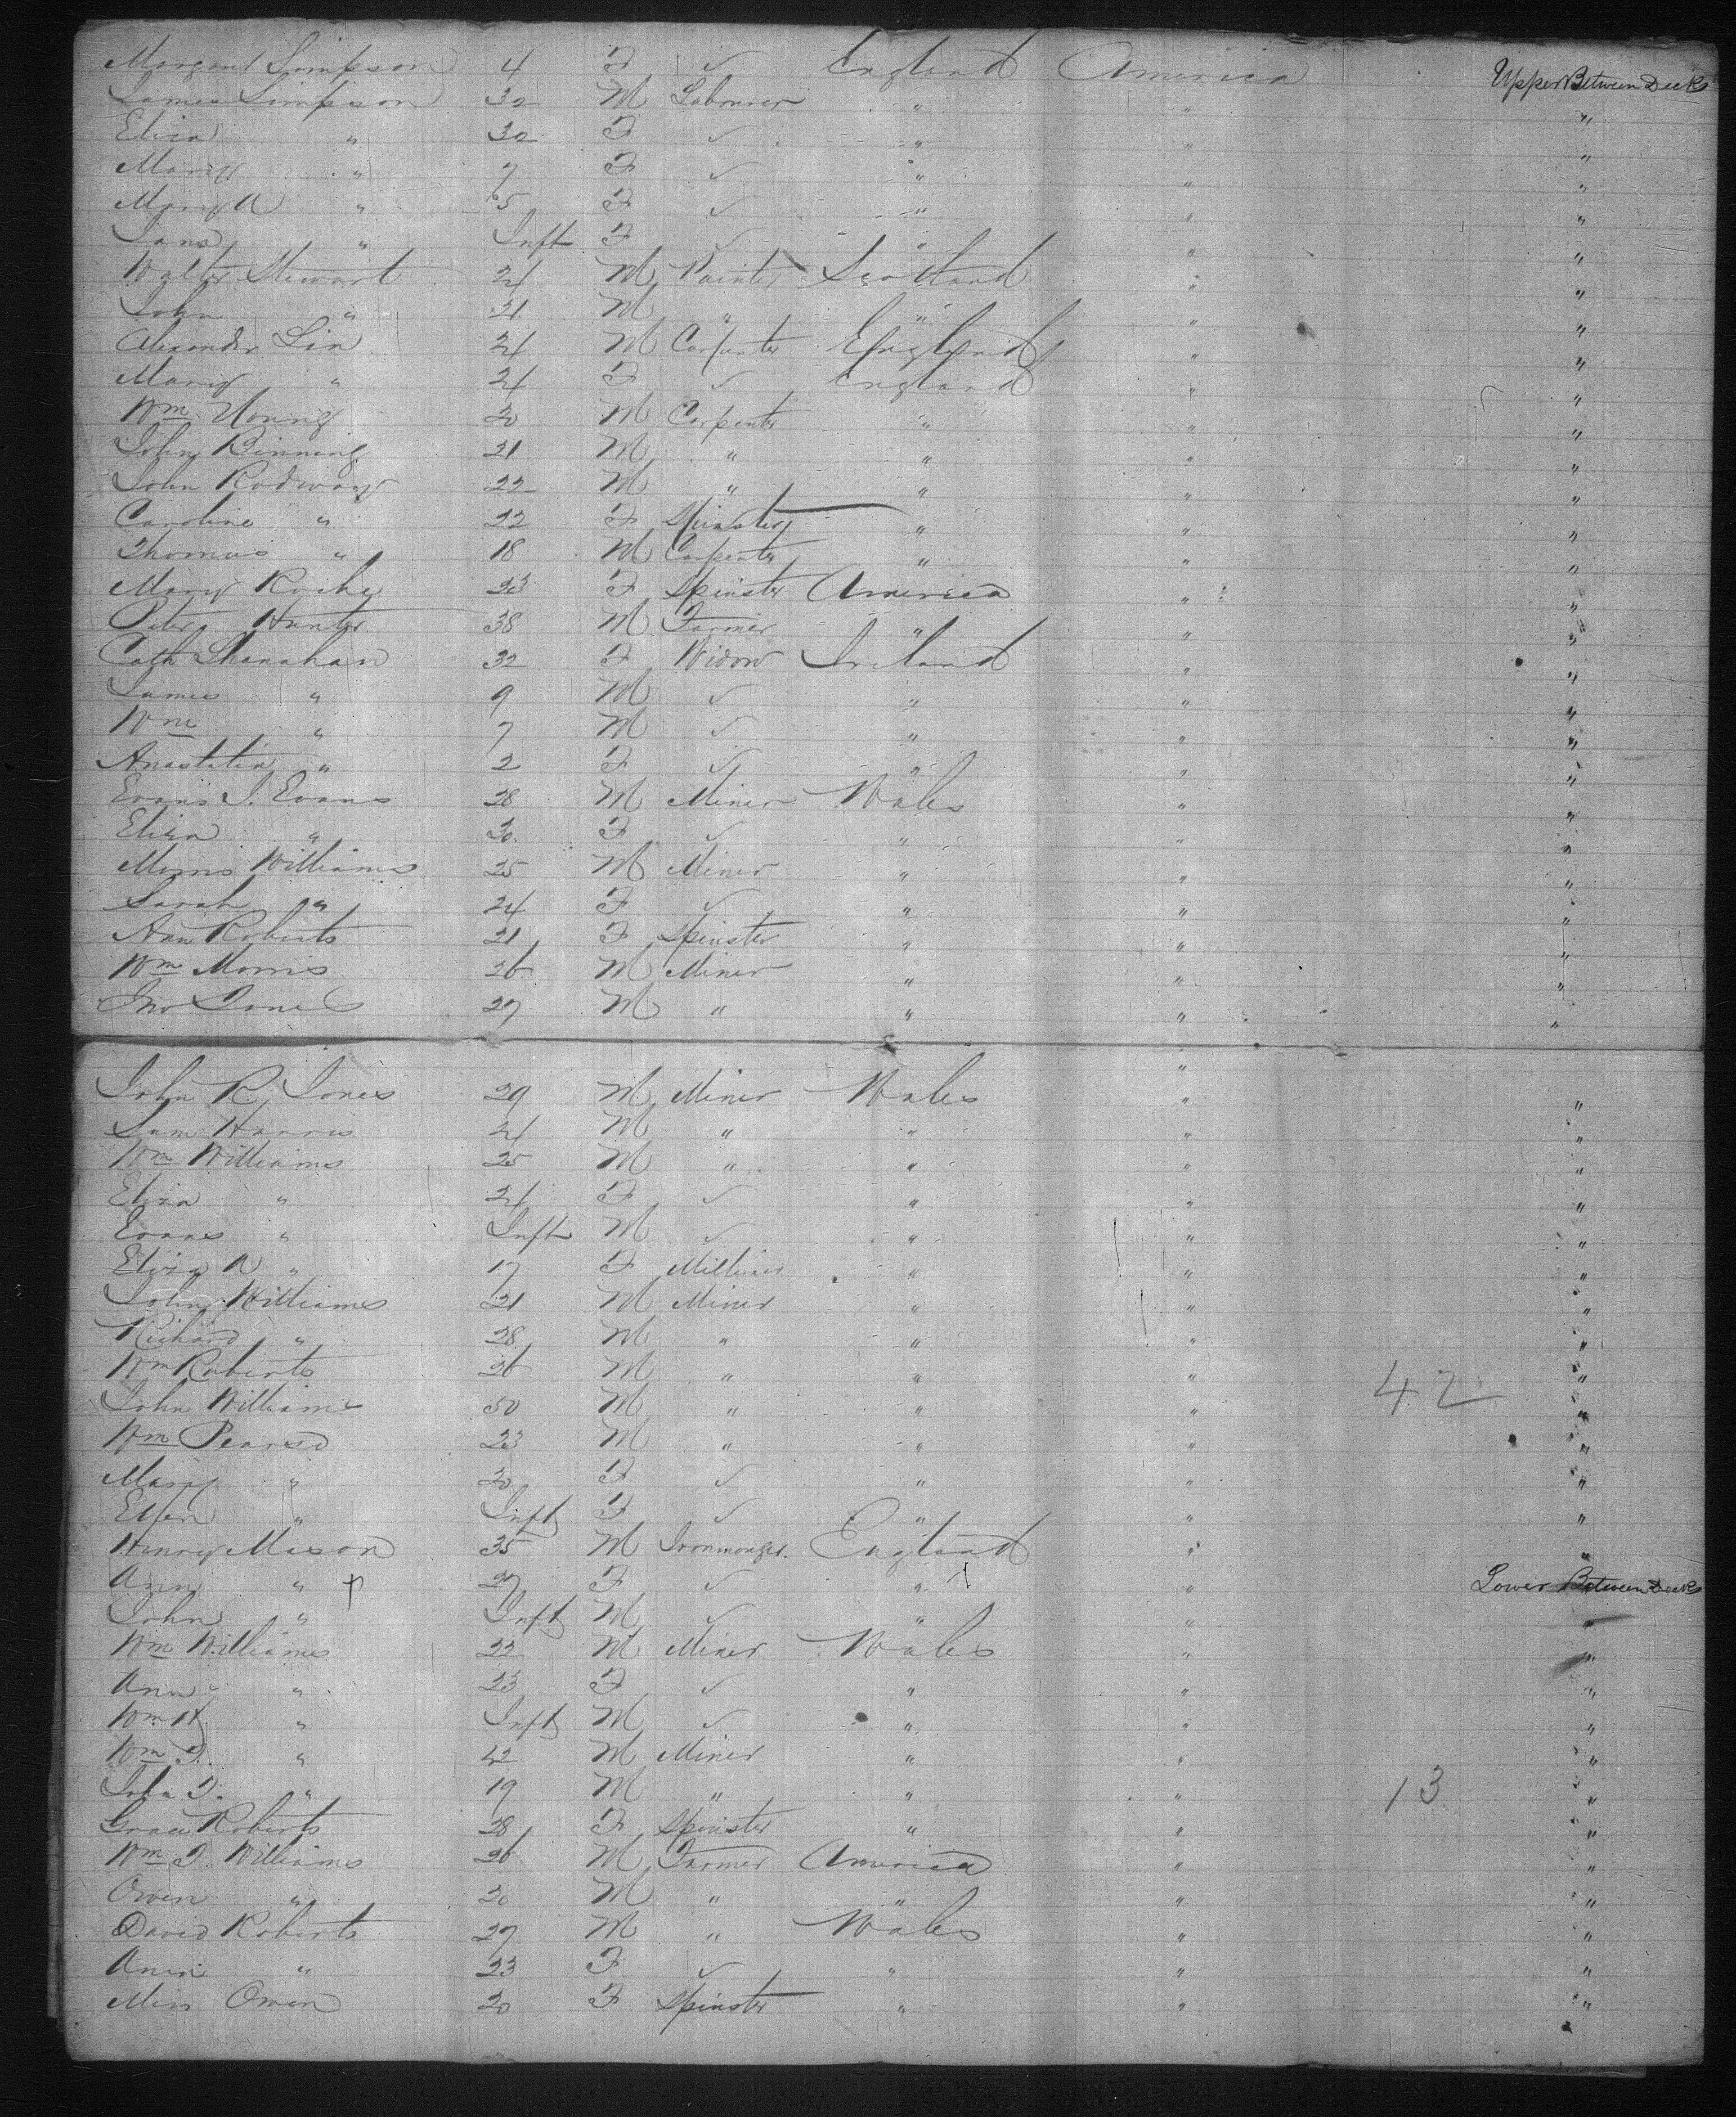 Margaret Simpson 4 F ✓ England America Upper Between Decks
James Simpson 32 M Labourer " " "
Eliza " 30 F ✓ " " "
Mary " 7 F ✓ " " "
Mary A " 5 F ✓ " " "
Jane " Inft F ✓ " " "
Walter Stewart 24 M Painter Scotland " "
John " 21 M " " " "
Alexander Lin 24 M Carpenter England " "
Mary " 24 F ✓ England " "
Wm Young 20 M Carpenter " " "
John Binning 21 M " " " "
John Rodway 22 M " " " "
Caroline " 22 F Spinster " " "
Thomas " 18 M Carpenter " " "
Mary 23 F Spinster America " "
Peter Hunter 38 M Farmer " " "
Cath Shanahan 32 F Widow Ireland " "
James " 9 M ✓ " " "
Wm " 7 M ✓ " " "
Anastatia " 2 F ✓ " " "
Evans J. Evans 28 M Miner Wales " "
Eliza " 30 F ✓ " " "
Morris Williams 25 M Miner " " "
Sarah " 24 F ✓ " " "
Ann Roberts 21 F Spinster " " "
Wm Morris 26 M Miner " " "
Jno Jones 27 M " " " "
John R. Jones 29 M Miner Wales " "
Sam Harris 24 M " " " "
Wm Williams 25 M " " " "
Eliza " 24 F ✓ " " "
Evans " Inft M ✓ " " "
Eliza A " 17 F Milliner " " "
John Williams 21 M Miner " " "
Richard " 28 M " " " "
Wm Roberts 26 M " " " "
John Williams 50 M " " " 42 "
Wm Pearse 23 M " " " "
Mary " 20 F ✓ " " "
Ellen " Inft F ✓ " " "
Henry Mason 35 M Ironmonger England " "
Ann " 27 F ✓ " " Lower Between Decks
John " Inft M ✓ " " "
Wm Williams 22 M Miner Wales " "
Ann " 23 F ✓ " " "
Wm H " Inft M ✓ " " "
Wm T. " 42 M Miner " " "
John T. " 19 M " " " 13 "
Grace Roberts 28 F Spinster " " "
Wm T. Williams 26 M Farmer America " "
Owen " 20 M " " " "
David Roberts 27 M " Wales " "
Ann " 23 F ✓ " " "
Miss Owen 20 F Spinster " " "